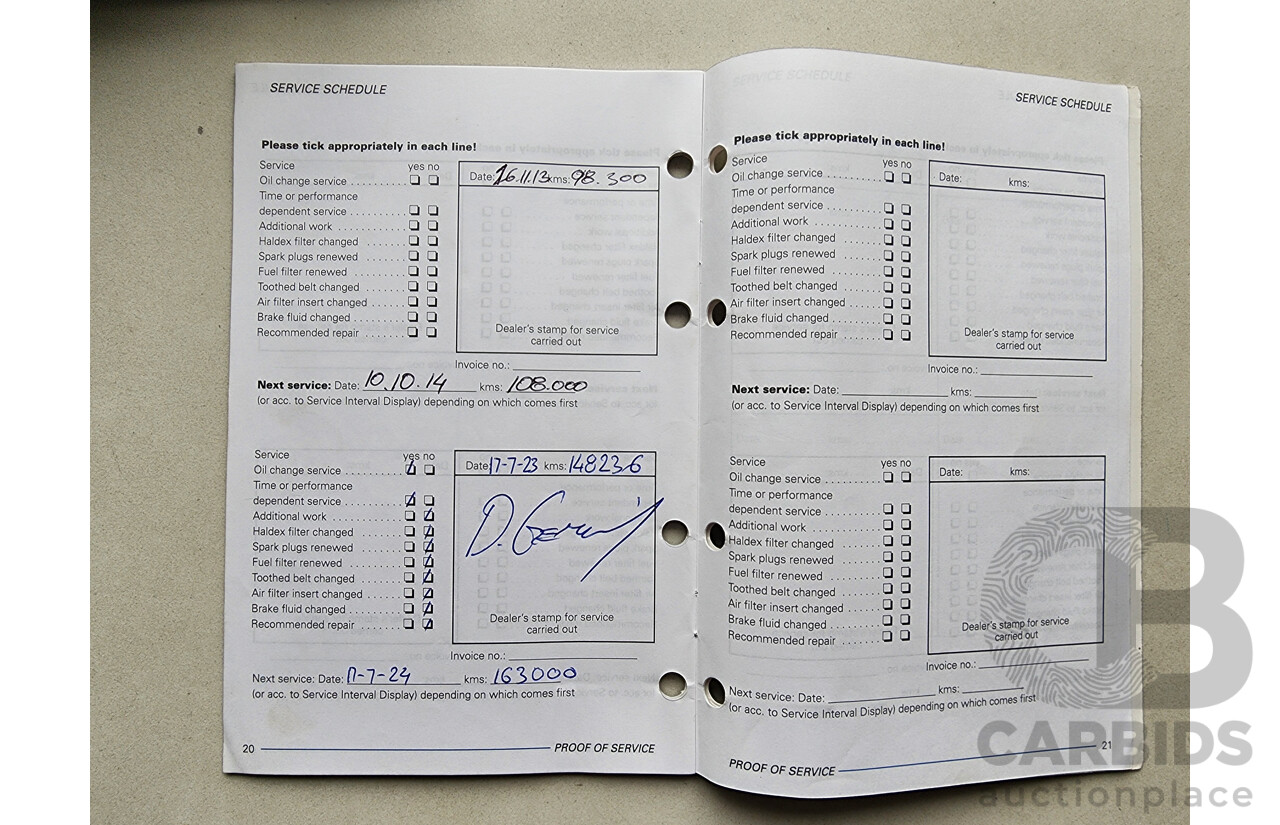 SERVICE SCHEDULE
Please tick appropriately in each line!
Service yes no
Oil change service ..........
Time or performance
dependent service ..........
Additional work ..........
Haldex filter changed ......
Spark plugs renewed ......
Fuel filter renewed ........
Toothed belt changed ......
Air filter insert changed ......
Brake fluid changed ........
Recommended repair ......
Date: 16.11.13 kms: 98.300
Dealer's stamp for service
carried out
Invoice no.:
Next service: Date: 10.10.14 kms: 108.000
(or acc. to Service Interval Display) depending on which comes first
Service yes no
Oil change service ..........
Time or performance
dependent service ..........
Additional work ..........
Haldex filter changed ......
Spark plugs renewed ......
Fuel filter renewed ........
Toothed belt changed ......
Air filter insert changed ......
Brake fluid changed ........
Recommended repair ......
Date: 17-7-23 kms: 148236
Dealer's stamp for service
carried out
Invoice no.:
Next service: Date: 17-7-24 kms: 163000
(or acc. to Service Interval Display) depending on which comes first
20 PROOF OF SERVICE
SERVICE SCHEDULE
Please tick appropriately in each line!
Service yes no
Oil change service ..........
Time or performance
dependent service ..........
Additional work ..........
Haldex filter changed ......
Spark plugs renewed ......
Fuel filter renewed ........
Toothed belt changed ......
Air filter insert changed ......
Brake fluid changed ........
Recommended repair ......
Date: kms:
Dealer's stamp for service
carried out
Invoice no.:
Next service: Date: kms:
(or acc. to Service Interval Display) depending on which comes first
Service yes no
Oil change service ..........
Time or performance
dependent service ..........
Additional work ..........
Haldex filter changed ......
Spark plugs renewed ......
Fuel filter renewed ........
Toothed belt changed ......
Air filter insert changed ......
Brake fluid changed ........
Recommended repair ......
Date: kms:
Dealer's stamp for service
carried out
Invoice no.:
Next service: Date: kms:
(or acc. to Service Interval Display) depending on which comes first
PROOF OF SERVICE 21
CB
CARBIDS
auctionplace